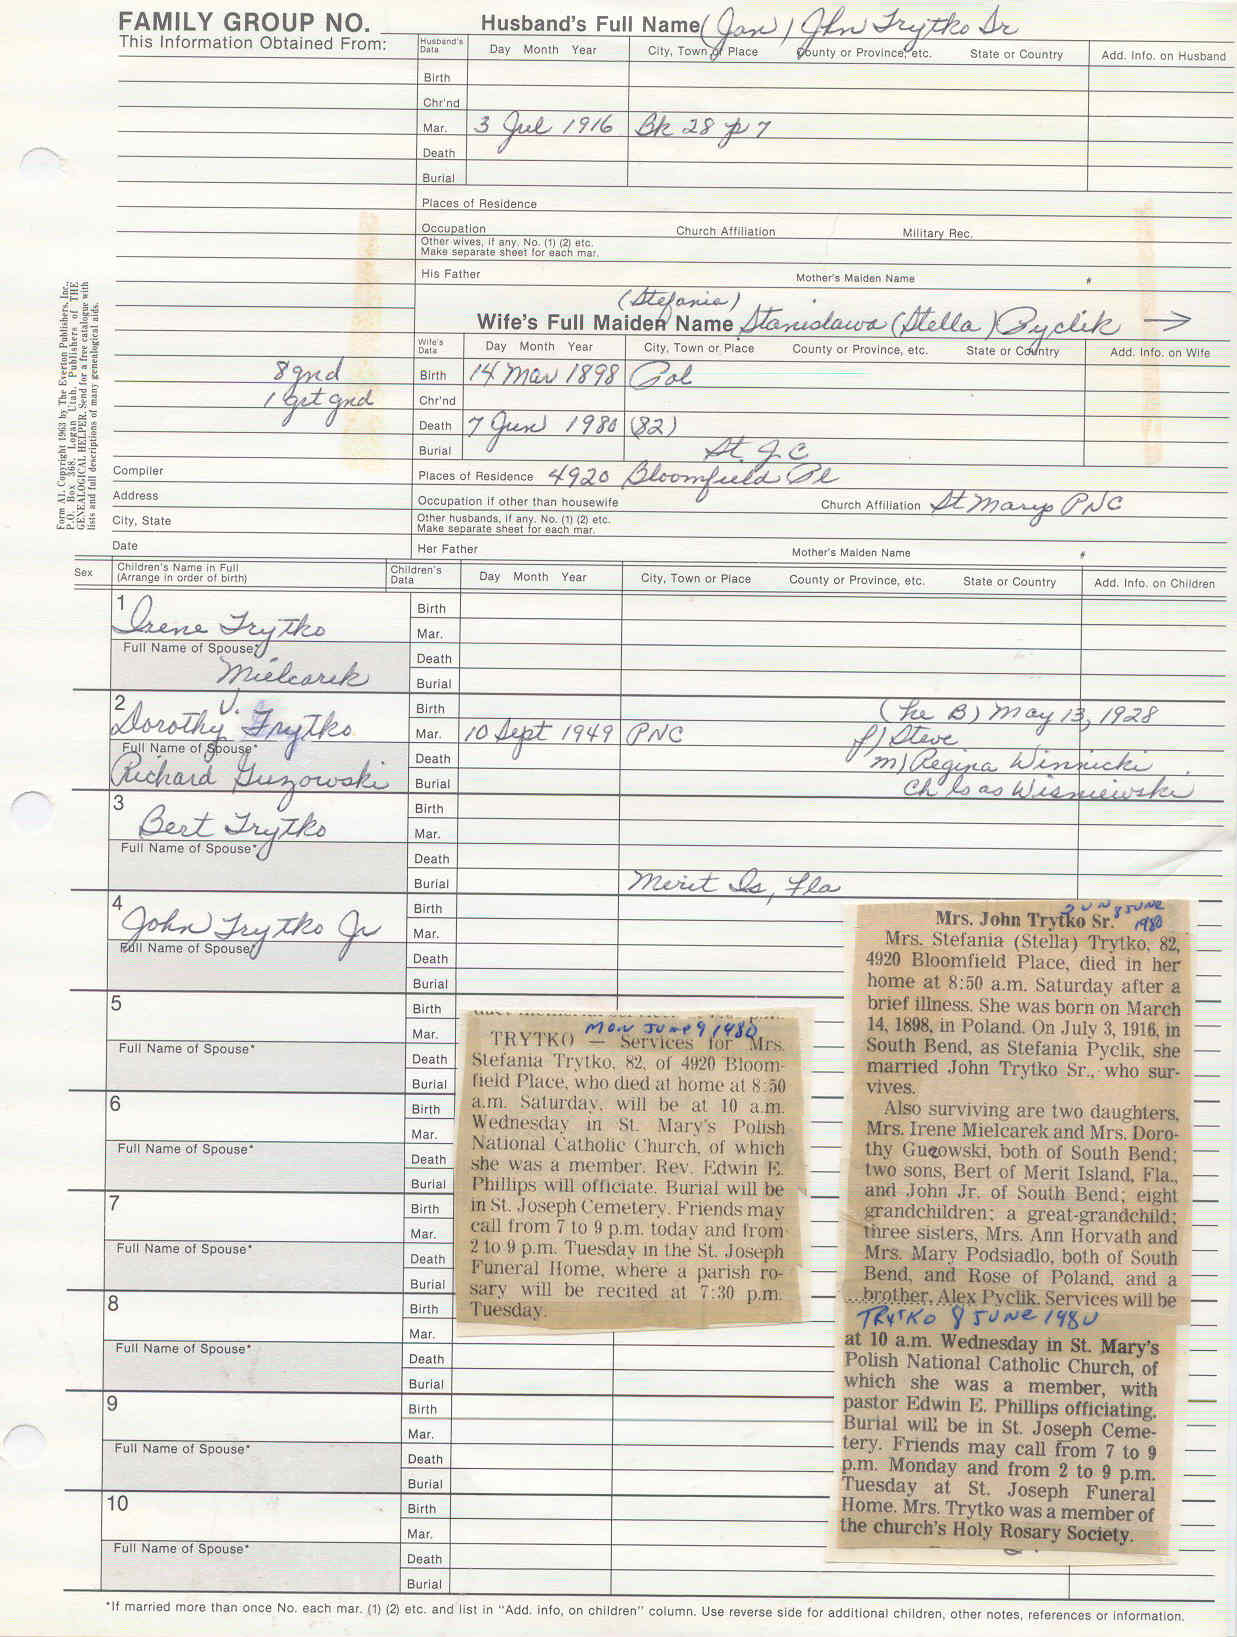 FAMILY GROUP NO.
Husband's Full Name (Jan) John Trytko Sr
This Information Obtained From:
Husband's Data Day Month Year City, Town or Place County or Province, etc. State or Country Add. Info. on Husband
Birth
Chr'nd
Mar. 3 Jul 1916 Bk 28 p 7
Death
Burial
Places of Residence
Occupation Church Affiliation Military Rec.
Other wives, if any. No. (1) (2) etc.
Make separate sheet for each mar.
His Father Mother's Maiden Name #
(Stefania)
Wife's Full Maiden Name Stanislawa (Stella) Pyclik →
Wife's Data Day Month Year City, Town or Place County or Province, etc. State or Country Add. Info. on Wife
8 gnd
Birth 14 Mar 1898 Pol
1 grt gnd
Chr'nd
Death 7 Jun 1980 (82)
Burial St. J. C
Places of Residence 4920 Bloomfield Pl
Occupation if other than housewife Church Affiliation St Marys PNC
Other husbands, if any. No. (1) (2) etc.
Make separate sheet for each mar.
Her Father Mother's Maiden Name #
Form A1. Copyright 1963 by The Everton Publishers, Inc.,
P.O. Box 368, Logan Utah. Publishers of THE
GENEALOGICAL HELPER. Send for a free catalogue with
lists and full descriptions of many genealogical aids.
Compiler
Address
City, State
Date
Sex Children's Name in Full
(Arrange in order of birth)
Children's Data Day Month Year City, Town or Place County or Province, etc. State or Country Add. Info. on Children
1 Irene Trytko
Birth
Mar.
Full Name of Spouse*
Mielcarek
Death
Burial
2 Dorothy V. Trytko
Birth (he B) May 13, 1928
Mar. 10 Sept 1949 PNC f) Steve
Full Name of Spouse*
Richard Guzowski
Death m) Regina Winnicki
Burial Ch ls as Wisniewski
3 Bert Trytko
Birth
Mar.
Full Name of Spouse*
Death
Burial Merit Is, Fla
4 John Trytko Jr
Birth
Mar.
Full Name of Spouse*
Death
Burial
5
Birth
Mar.
Full Name of Spouse*
Death
Burial
6
Birth
Mar.
Full Name of Spouse*
Death
Burial
7
Birth
Mar.
Full Name of Spouse*
Death
Burial
8
Birth
Mar.
Full Name of Spouse*
Death
Burial
9
Birth
Mar.
Full Name of Spouse*
Death
Burial
10
Birth
Mar.
Full Name of Spouse*
Death
Burial
MON JUNE 9 1980
TRYTKO — Services for Mrs.
Stefania Trytko, 82, of 4920 Bloom-
field Place, who died at home at 8:50
a.m. Saturday, will be at 10 a.m.
Wednesday in St. Mary's Polish
National Catholic Church, of which
she was a member. Rev. Edwin E.
Phillips will officiate. Burial will be
in St. Joseph Cemetery. Friends may
call from 7 to 9 p.m. today and from
2 to 9 p.m. Tuesday in the St. Joseph
Funeral Home, where a parish ro-
sary will be recited at 7:30 p.m.
Tuesday.
SUN 8 JUNE
1980
Mrs. John Trytko Sr.
Mrs. Stefania (Stella) Trytko, 82,
4920 Bloomfield Place, died in her
home at 8:50 a.m. Saturday after a
brief illness. She was born on March
14, 1898, in Poland. On July 3, 1916, in
South Bend, as Stefania Pyclik, she
married John Trytko Sr., who sur-
vives.
Also surviving are two daughters,
Mrs. Irene Mielcarek and Mrs. Doro-
thy Guzowski, both of South Bend;
two sons, Bert of Merit Island, Fla.,
and John Jr. of South Bend; eight
grandchildren; a great-grandchild;
three sisters, Mrs. Ann Horvath and
Mrs. Mary Podsiadlo, both of South
Bend, and Rose of Poland, and a
brother, Alex Pyclik. Services will be
TRYTKO 8 JUNE 1980
at 10 a.m. Wednesday in St. Mary's
Polish National Catholic Church, of
which she was a member, with
pastor Edwin E. Phillips officiating.
Burial will be in St. Joseph Ceme-
tery. Friends may call from 7 to 9
p.m. Monday and from 2 to 9 p.m.
Tuesday at St. Joseph Funeral
Home. Mrs. Trytko was a member of
the church's Holy Rosary Society.
*If married more than once No. each mar. (1) (2) etc. and list in "Add. info, on children" column. Use reverse side for additional children, other notes, references or information.